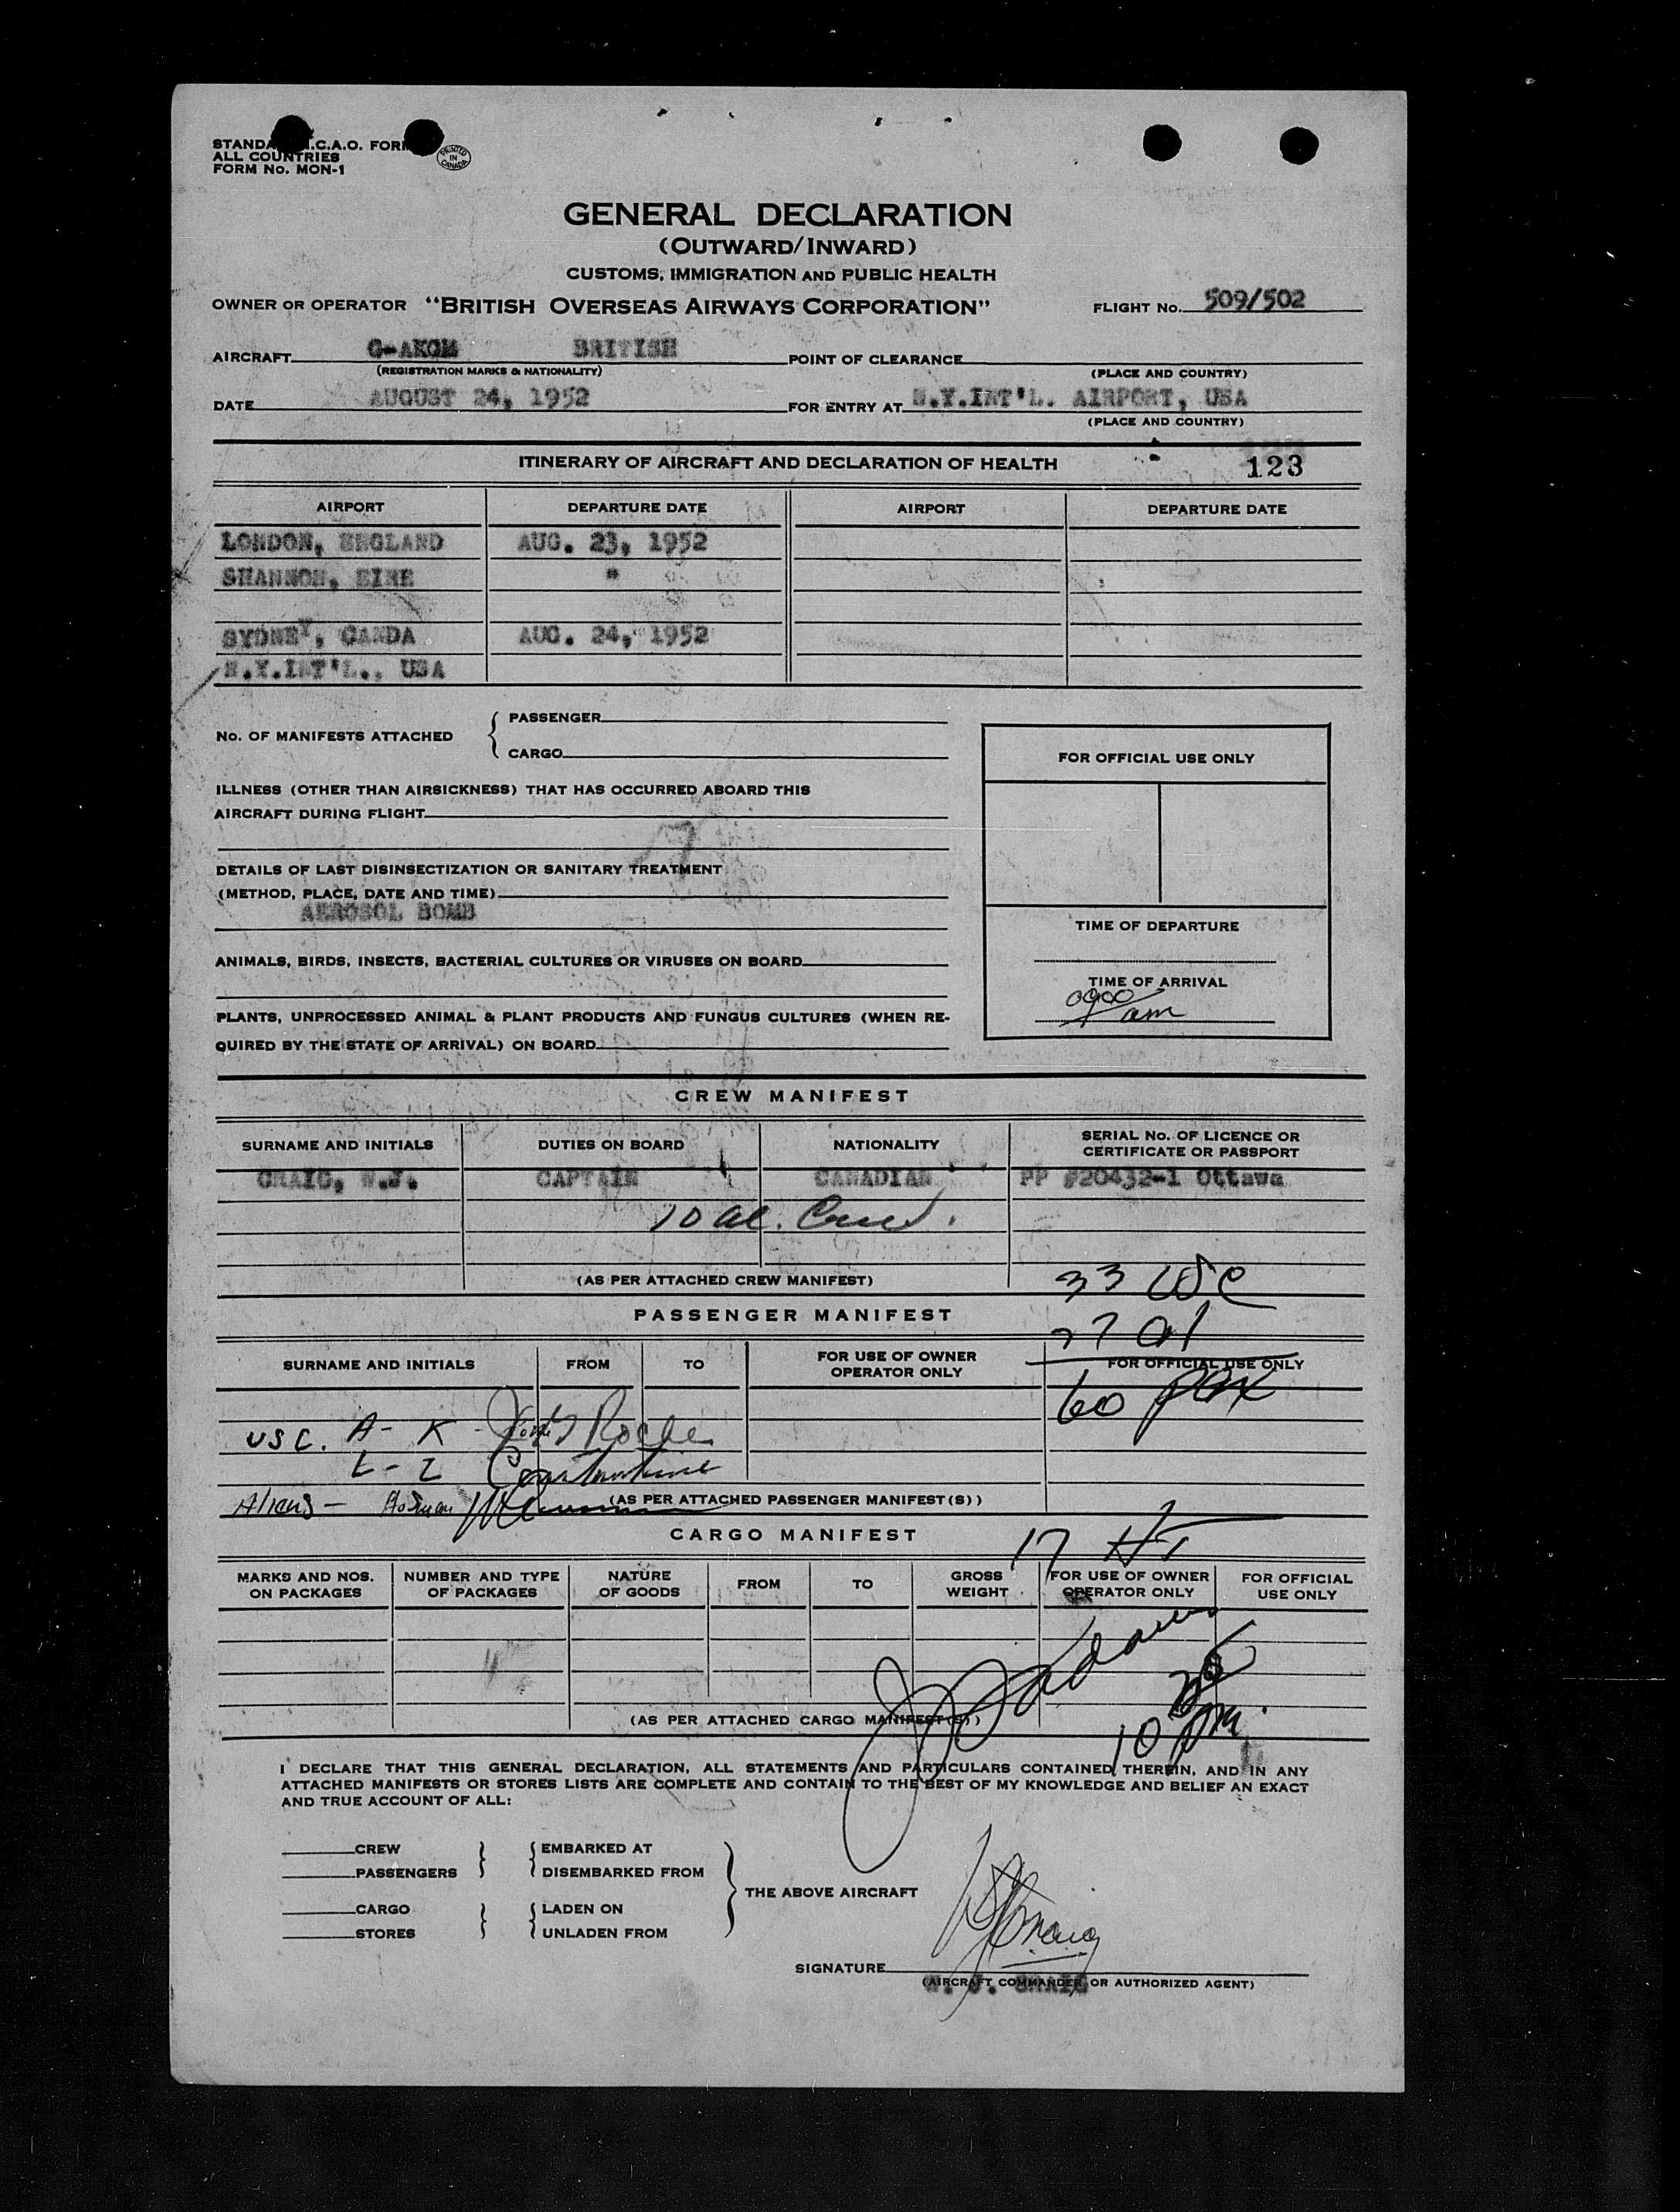 STANDA .C.A.O. FOR
ALL COUNTRIES
FORM No. MON-1
PRINTED IN CANADA
GENERAL DECLARATION
(OUTWARD/INWARD)
CUSTOMS, IMMIGRATION AND PUBLIC HEALTH
OWNER OR OPERATOR "BRITISH OVERSEAS AIRWAYS CORPORATION" FLIGHT No. 509/502
AIRCRAFT G-AKGM BRITISH POINT OF CLEARANCE
(REGISTRATION MARKS & NATIONALITY) (PLACE AND COUNTRY)
DATE AUGUST 24, 1952 FOR ENTRY AT N.Y.INT'L. AIRPORT, USA
(PLACE AND COUNTRY)
ITINERARY OF AIRCRAFT AND DECLARATION OF HEALTH 123
AIRPORT DEPARTURE DATE AIRPORT DEPARTURE DATE
LONDON, ENGLAND AUG. 23, 1952
SHANNON, EIRE "
SYDNEY, CANDA AUG. 24, 1952
N.Y.INT'L., USA
No. OF MANIFESTS ATTACHED { PASSENGER
CARGO
FOR OFFICIAL USE ONLY
ILLNESS (OTHER THAN AIRSICKNESS) THAT HAS OCCURRED ABOARD THIS
AIRCRAFT DURING FLIGHT
DETAILS OF LAST DISINSECTIZATION OR SANITARY TREATMENT
(METHOD, PLACE, DATE AND TIME)
AEROSOL BOMB
TIME OF DEPARTURE
ANIMALS, BIRDS, INSECTS, BACTERIAL CULTURES OR VIRUSES ON BOARD
TIME OF ARRIVAL
0900
am
PLANTS, UNPROCESSED ANIMAL & PLANT PRODUCTS AND FUNGUS CULTURES (WHEN RE-
QUIRED BY THE STATE OF ARRIVAL) ON BOARD
CREW MANIFEST
SURNAME AND INITIALS DUTIES ON BOARD NATIONALITY SERIAL No. OF LICENCE OR CERTIFICATE OR PASSPORT
CRAIG, W.J. CAPTAIN CANADIAN PP #20432-1 Ottawa
10 al. Crew.
(AS PER ATTACHED CREW MANIFEST)
33 USC
27 al
PASSENGER MANIFEST
SURNAME AND INITIALS FROM TO FOR USE OF OWNER OPERATOR ONLY FOR OFFICIAL USE ONLY
60 pax
USC. A-K Roche
L-Z Constantine
Aliens -
(AS PER ATTACHED PASSENGER MANIFEST(S))
CARGO MANIFEST
17
MARKS AND NOS. ON PACKAGES NUMBER AND TYPE OF PACKAGES NATURE OF GOODS FROM TO GROSS WEIGHT FOR USE OF OWNER OPERATOR ONLY FOR OFFICIAL USE ONLY
10 pm.
(AS PER ATTACHED CARGO MANIFEST(S))
I DECLARE THAT THIS GENERAL DECLARATION, ALL STATEMENTS AND PARTICULARS CONTAINED THEREIN, AND IN ANY
ATTACHED MANIFESTS OR STORES LISTS ARE COMPLETE AND CONTAIN TO THE BEST OF MY KNOWLEDGE AND BELIEF AN EXACT
AND TRUE ACCOUNT OF ALL:
CREW } { EMBARKED AT
PASSENGERS } { DISEMBARKED FROM
THE ABOVE AIRCRAFT
CARGO } { LADEN ON
STORES } { UNLADEN FROM
SIGNATURE W J Craig
(AIRCRAFT COMMANDER OR AUTHORIZED AGENT)
W. J. CRAIG